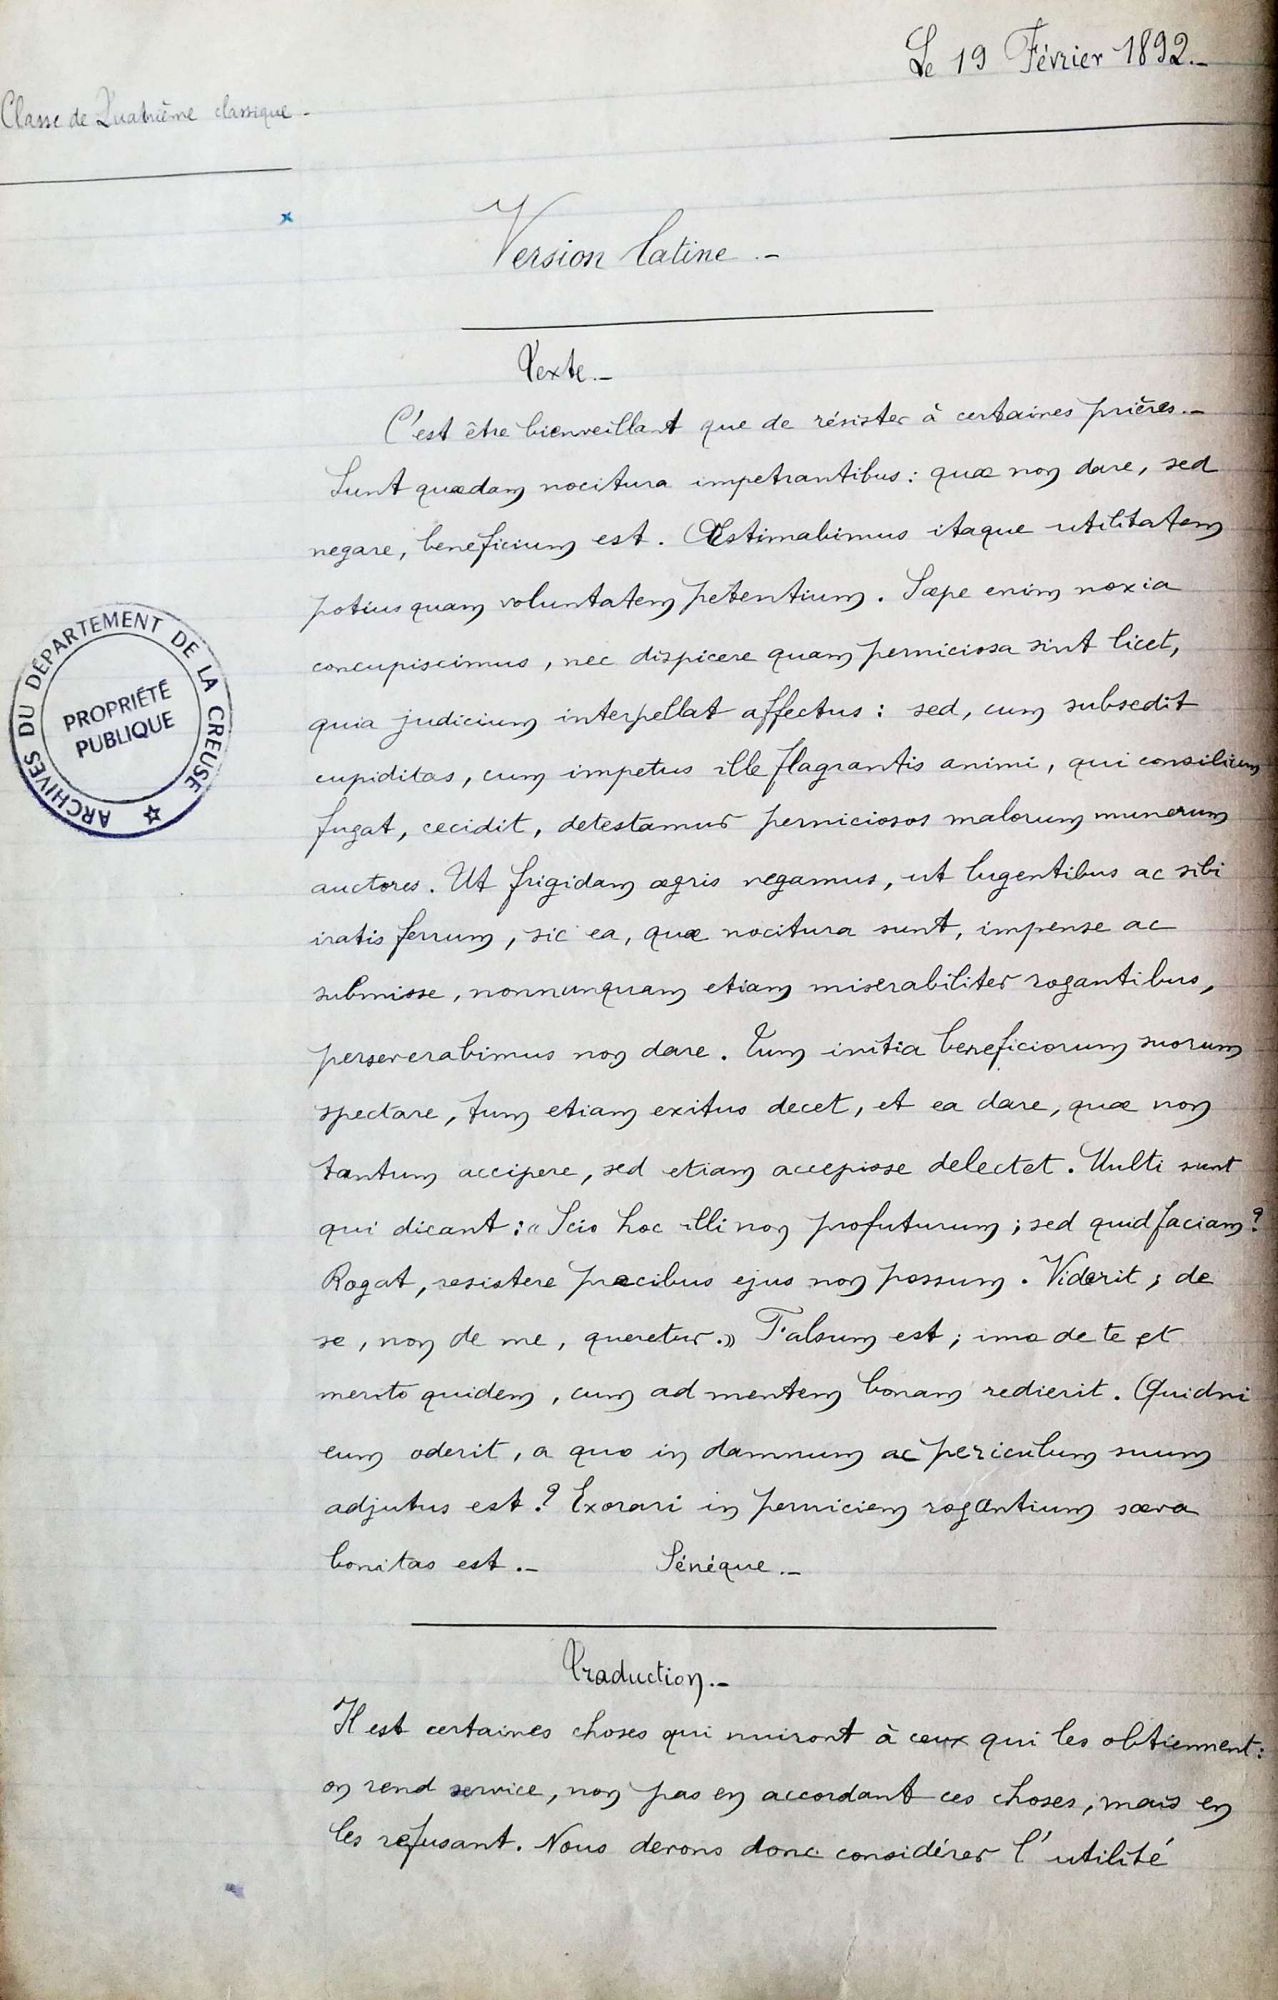 Le 19 Février 1892.-
Classe de Quatrième classique.-
Version latine.-
Texte.-
C'est être bienveillant que de résister à certaines prières.-
Sunt quædam nocitura impetrantibus: quæ non dare, sed
negare, beneficium est. Æstimabimus itaque utilitatem
potius quam voluntatem petentium. Sæpe enim noxia
concupiscimus, nec dispicere quam perniciosa sint licet,
quia judicium interpellat affectus: sed, cum subsedit
cupiditas, cum impetus ille flagrantis animi, qui consilium
fugat, cecidit, detestamur perniciosos malorum munerum
auctores. Ut frigidam ægris negamus, ut lugentibus ac sibi
iratis ferrum, sic ea, quæ nocitura sunt, impense ac
submisse, nonnunquam etiam miserabiliter rogantibus,
perseverabimus non dare. Tum initia beneficiorum suorum
spectare, tum etiam exitus decet, et ea dare, quæ non
tantum accipere, sed etiam accepisse delectet. Multi sunt
qui dicant: « Scio hoc illi non profuturum; sed quid faciam?
Rogat, resistere precibus ejus non possum. Viderit; de
se, non de me, queretur.» Falsum est; imo de te et
merito quidem, cum ad mentem bonam redierit. Quidni
eum oderit, a quo in damnum ac periculum suum
adjutus est? Exorari in perniciem rogantium sæva
bonitas est.- Sénèque.-
Traduction.-
Il est certaines choses qui nuiront à ceux qui les obtiennent:
on rend service, non pas en accordant ces choses, mais en
les refusant. Nous devons donc considérer l'utilité
ARCHIVES DU DÉPARTEMENT DE LA CREUSE
PROPRIÉTÉ
PUBLIQUE